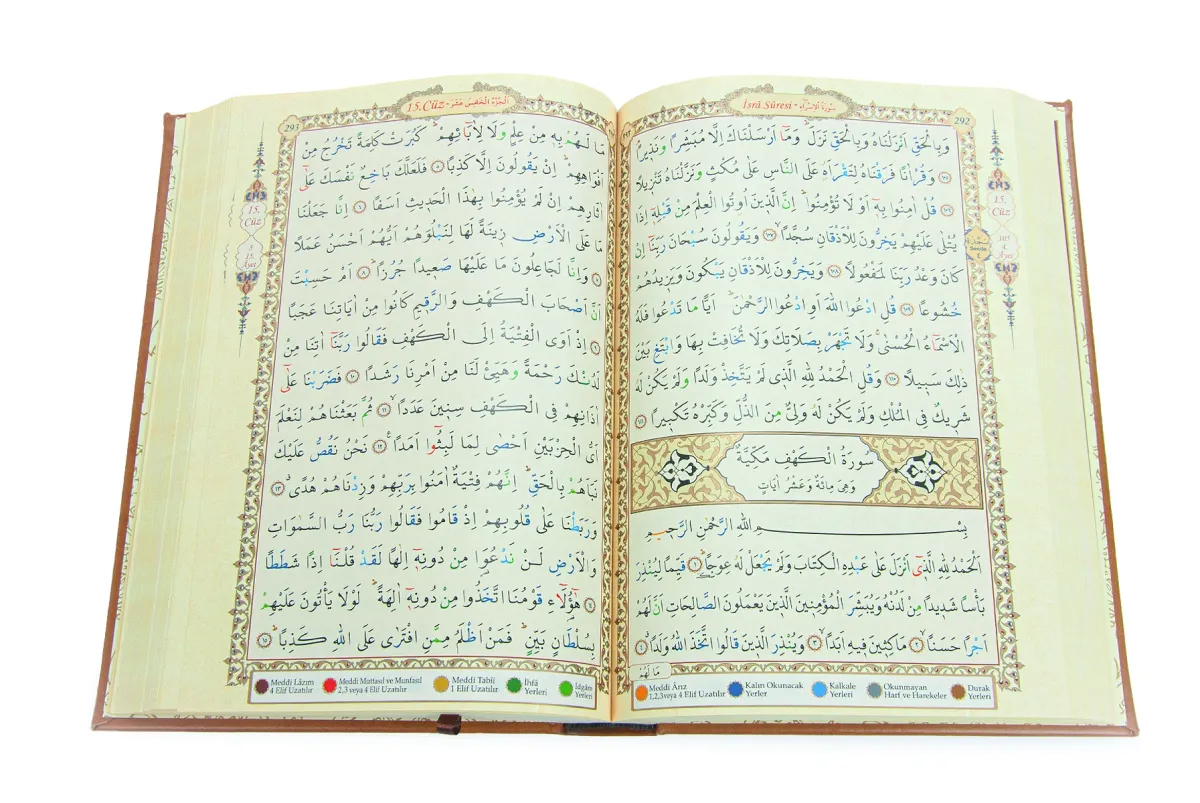 İsrâ Sûresi - سُورَةُ الْاِسْرَاءِ
292
وَبِالْحَقِّ اَنْزَلْنَاهُ وَبِالْحَقِّ نَزَلَۜ وَمَٓا اَرْسَلْنَاكَ اِلَّا مُبَشِّرًا وَنَذ۪يرًاۢ
﴿١٠٥﴾ وَقُرْاٰنًا فَرَقْنَاهُ لِتَقْرَاَهُ عَلَى النَّاسِ عَلٰى مُكْثٍ وَنَزَّلْنَاهُ تَنْز۪يلًا
﴿١٠٦﴾ قُلْ اٰمِنُوا بِه۪ٓ اَوْ لَا تُؤْمِنُواۜ اِنَّ الَّذ۪ينَ اُو۫تُوا الْعِلْمَ مِنْ قَبْلِه۪ٓ اِذَا
يُتْلٰى عَلَيْهِمْ يَخِرُّونَ لِلْاَذْقَانِ سُجَّدًاۙ ﴿١٠٧﴾ وَيَقُولُونَ سُبْحَانَ رَبِّنَٓا اِنْ
كَانَ وَعْدُ رَبِّنَا لَمَفْعُولًا ﴿١٠٨﴾ وَيَخِرُّونَ لِلْاَذْقَانِ يَبْكُونَ وَيَز۪يدُهُمْ
خُشُوعًا ﴿١٠٩﴾ قُلِ ادْعُوا اللّٰهَ اَوِ ادْعُوا الرَّحْمٰنَۜ اَيًّا مَا تَدْعُوا فَلَهُ
الْاَسْمَٓاءُ الْحُسْنٰىۚ وَلَا تَجْهَرْ بِصَلَاتِكَ وَلَا تُخَافِتْ بِهَا وَابْتَغِ بَيْنَ
ذٰلِكَ سَب۪يلًا ﴿١١٠﴾ وَقُلِ الْحَمْدُ لِلّٰهِ الَّذ۪ي لَمْ يَتَّخِذْ وَلَدًا وَلَمْ يَكُنْ لَهُ
شَر۪يكٌ فِي الْمُلْكِ وَلَمْ يَكُنْ لَهُ وَلِيٌّ مِنَ الذُّلِّ وَكَبِّرْهُ تَكْب۪يرًا ﴿١١١﴾
سُورَةُ الْكَهْفِ مَكِّيَّةٌ
وَهِيَ مِائَةٌ وَعَشْرُ اٰيَاتٍ
بِسْمِ اللّٰهِ الرَّحْمٰنِ الرَّح۪يمِ
اَلْحَمْدُ لِلّٰهِ الَّذ۪ٓي اَنْزَلَ عَلٰى عَبْدِهِ الْكِتَابَ وَلَمْ يَجْعَلْ لَهُ عِوَجًاۜ ﴿١﴾ قَيِّمًا لِيُنْذِرَ
بَأْسًا شَد۪يدًا مِنْ لَدُنْهُ وَيُبَشِّرَ الْمُؤْمِن۪ينَ الَّذ۪ينَ يَعْمَلُونَ الصَّالِحَاتِ اَنَّ لَهُمْ
اَجْرًا حَسَنًاۙ ﴿٢﴾ مَاكِث۪ينَ ف۪يهِ اَبَدًاۙ ﴿٣﴾ وَيُنْذِرَ الَّذ۪ينَ قَالُوا اتَّخَذَ اللّٰهُ وَلَدًاۗ ﴿٤﴾
مَا لَهُمْ
15.
Cüz
4.
Âyet
Secde
Meddi Ârız
1,2,3 veya 4 Elif Uzatılır
Kalın Okunacak
Yerler
Kalkale
Yerleri
Okunmayan
Harf ve Harekeler
Durak
Yerleri
15.Cüz - اَلْجُزْءُ الْخَامِسَ عَشَرَ
293
مَا لَهُمْ بِه۪ مِنْ عِلْمٍ وَلَا لِاٰبَٓائِهِمْۜ كَبُرَتْ كَلِمَةً تَخْرُجُ مِنْ
اَفْوَاهِهِمْۜ اِنْ يَقُولُونَ اِلَّا كَذِبًا ﴿٥﴾ فَلَعَلَّكَ بَاخِعٌ نَفْسَكَ عَلٰٓى
اٰثَارِهِمْ اِنْ لَمْ يُؤْمِنُوا بِهٰذَا الْحَد۪يثِ اَسَفًا ﴿٦﴾ اِنَّا جَعَلْنَا
مَا عَلَى الْاَرْضِ ز۪ينَةً لَهَا لِنَبْلُوَهُمْ اَيُّهُمْ اَحْسَنُ عَمَلًا
﴿٧﴾ وَاِنَّا لَجَاعِلُونَ مَا عَلَيْهَا صَع۪يدًا جُرُزًاۜ ﴿٨﴾ اَمْ حَسِبْتَ
اَنَّ اَصْحَابَ الْكَهْفِ وَالرَّق۪يمِ كَانُوا مِنْ اٰيَاتِنَا عَجَبًا
﴿٩﴾ اِذْ اَوَى الْفِتْيَةُ اِلَى الْكَهْفِ فَقَالُوا رَبَّنَٓا اٰتِنَا مِنْ
لَدُنْكَ رَحْمَةً وَهَيِّئْ لَنَا مِنْ اَمْرِنَا رَشَدًا ﴿١٠﴾ فَضَرَبْنَا عَلٰٓى
اٰذَانِهِمْ فِي الْكَهْفِ سِن۪ينَ عَدَدًاۙ ﴿١١﴾ ثُمَّ بَعَثْنَاهُمْ لِنَعْلَمَ
اَيُّ الْحِزْبَيْنِ اَحْصٰى لِمَا لَبِثُٓوا اَمَدًا۟ ﴿١٢﴾ نَحْنُ نَقُصُّ عَلَيْكَ
نَبَاَهُمْ بِالْحَقِّۜ اِنَّهُمْ فِتْيَةٌ اٰمَنُوا بِرَبِّهِمْ وَزِدْنَاهُمْ هُدًىۗ ﴿١٣﴾
وَرَبَطْنَا عَلٰى قُلُوبِهِمْ اِذْ قَامُوا فَقَالُوا رَبُّنَا رَبُّ السَّمٰوَاتِ
وَالْاَرْضِ لَنْ نَدْعُوَ۬ا مِنْ دُونِه۪ٓ اِلٰهًا لَقَدْ قُلْنَٓا اِذًا شَطَطًا
﴿١٤﴾ هٰٓؤُ۬لَٓاءِ قَوْمُنَا اتَّخَذُوا مِنْ دُونِه۪ٓ اٰلِهَةًۜ لَوْلَا يَأْتُونَ عَلَيْهِمْ
بِسُلْطَانٍ بَيِّنٍۜ فَمَنْ اَظْلَمُ مِمَّنِ افْتَرٰى عَلَى اللّٰهِ كَذِبًاۜ ﴿١٥﴾
15.
Cüz
5.
15.
Âyet
Meddi Lâzım
4 Elif Uzatılır
Meddi Muttasıl ve Munfasıl
2,3 veya 4 Elif Uzatılır
Meddi Tabiî
1 Elif Uzatılır
İhfâ
Yerleri
İdgâm
Yerleri